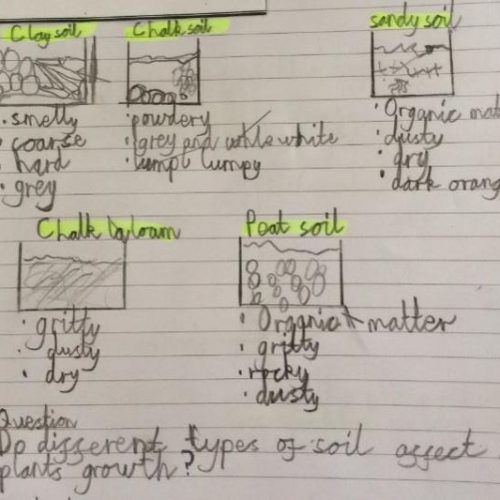 Clay soil
smelly
coarse
hard
grey
Chalk soil
powdery
grey and white
lumpy
sandy soil
Organic mat
dusty
dry
dark orang
Chalk loam
gritty
dusty
dry
Peat soil
Organic matter
gritty
rocky
dusty
Question
Do different types of soil affect
plants growth?